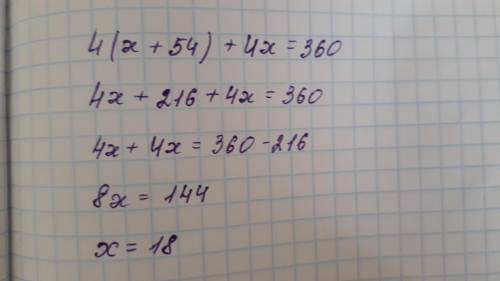 4(x + 54) + 4x = 360
4x + 216 + 4x = 360
4x + 4x = 360 - 216
8x = 144
x = 18